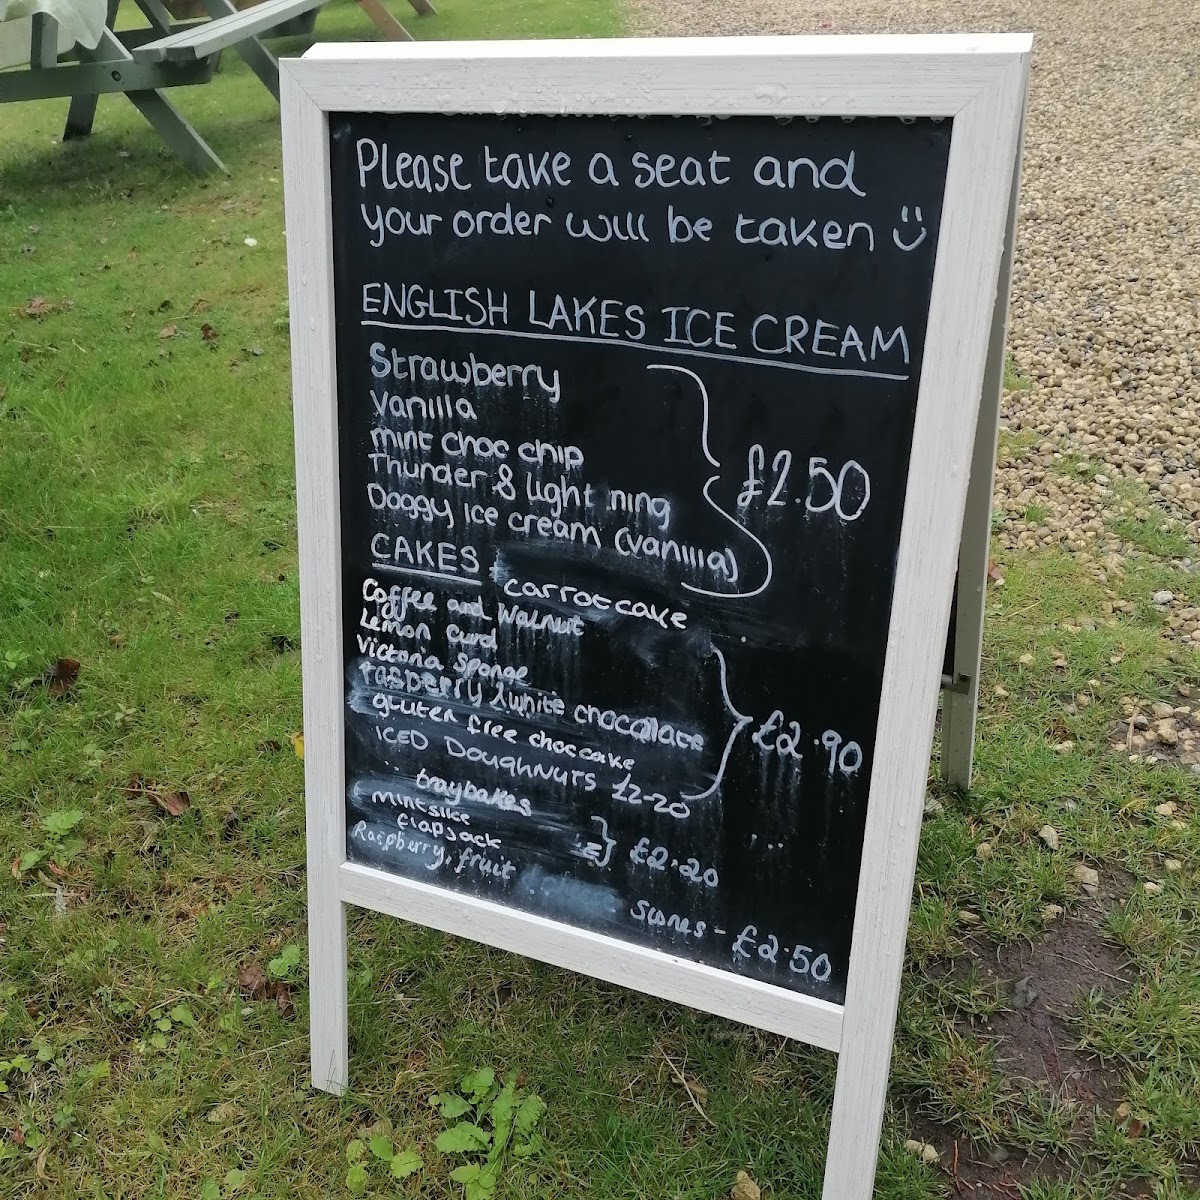 Please take a seat and
your order will be taken
ENGLISH LAKES ICE CREAM
Strawberry
Vanilla
mint choc chip
Thunder & light ning
Doggy ice cream (vanilla)
£2.50
CAKES
carrot cake
Coffee and Walnut
Lemon curd
Victoria Sponge
rasperry & white chocolate
gluten free choc cake
£2.90
ICED DOUGHNUTS £2-20
traybakes
mint slice
flapjack
£2.20
Raspberry, fruit
scones - £2.50